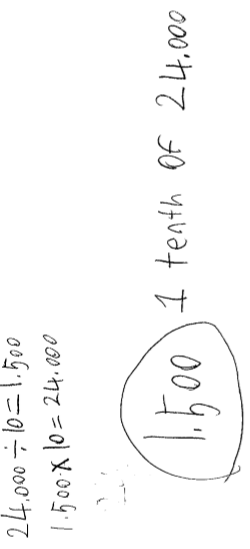 24.000 ÷ 10 = 1.500
1.500 x 10 = 24.000
1.500 1 tenth of 24.000